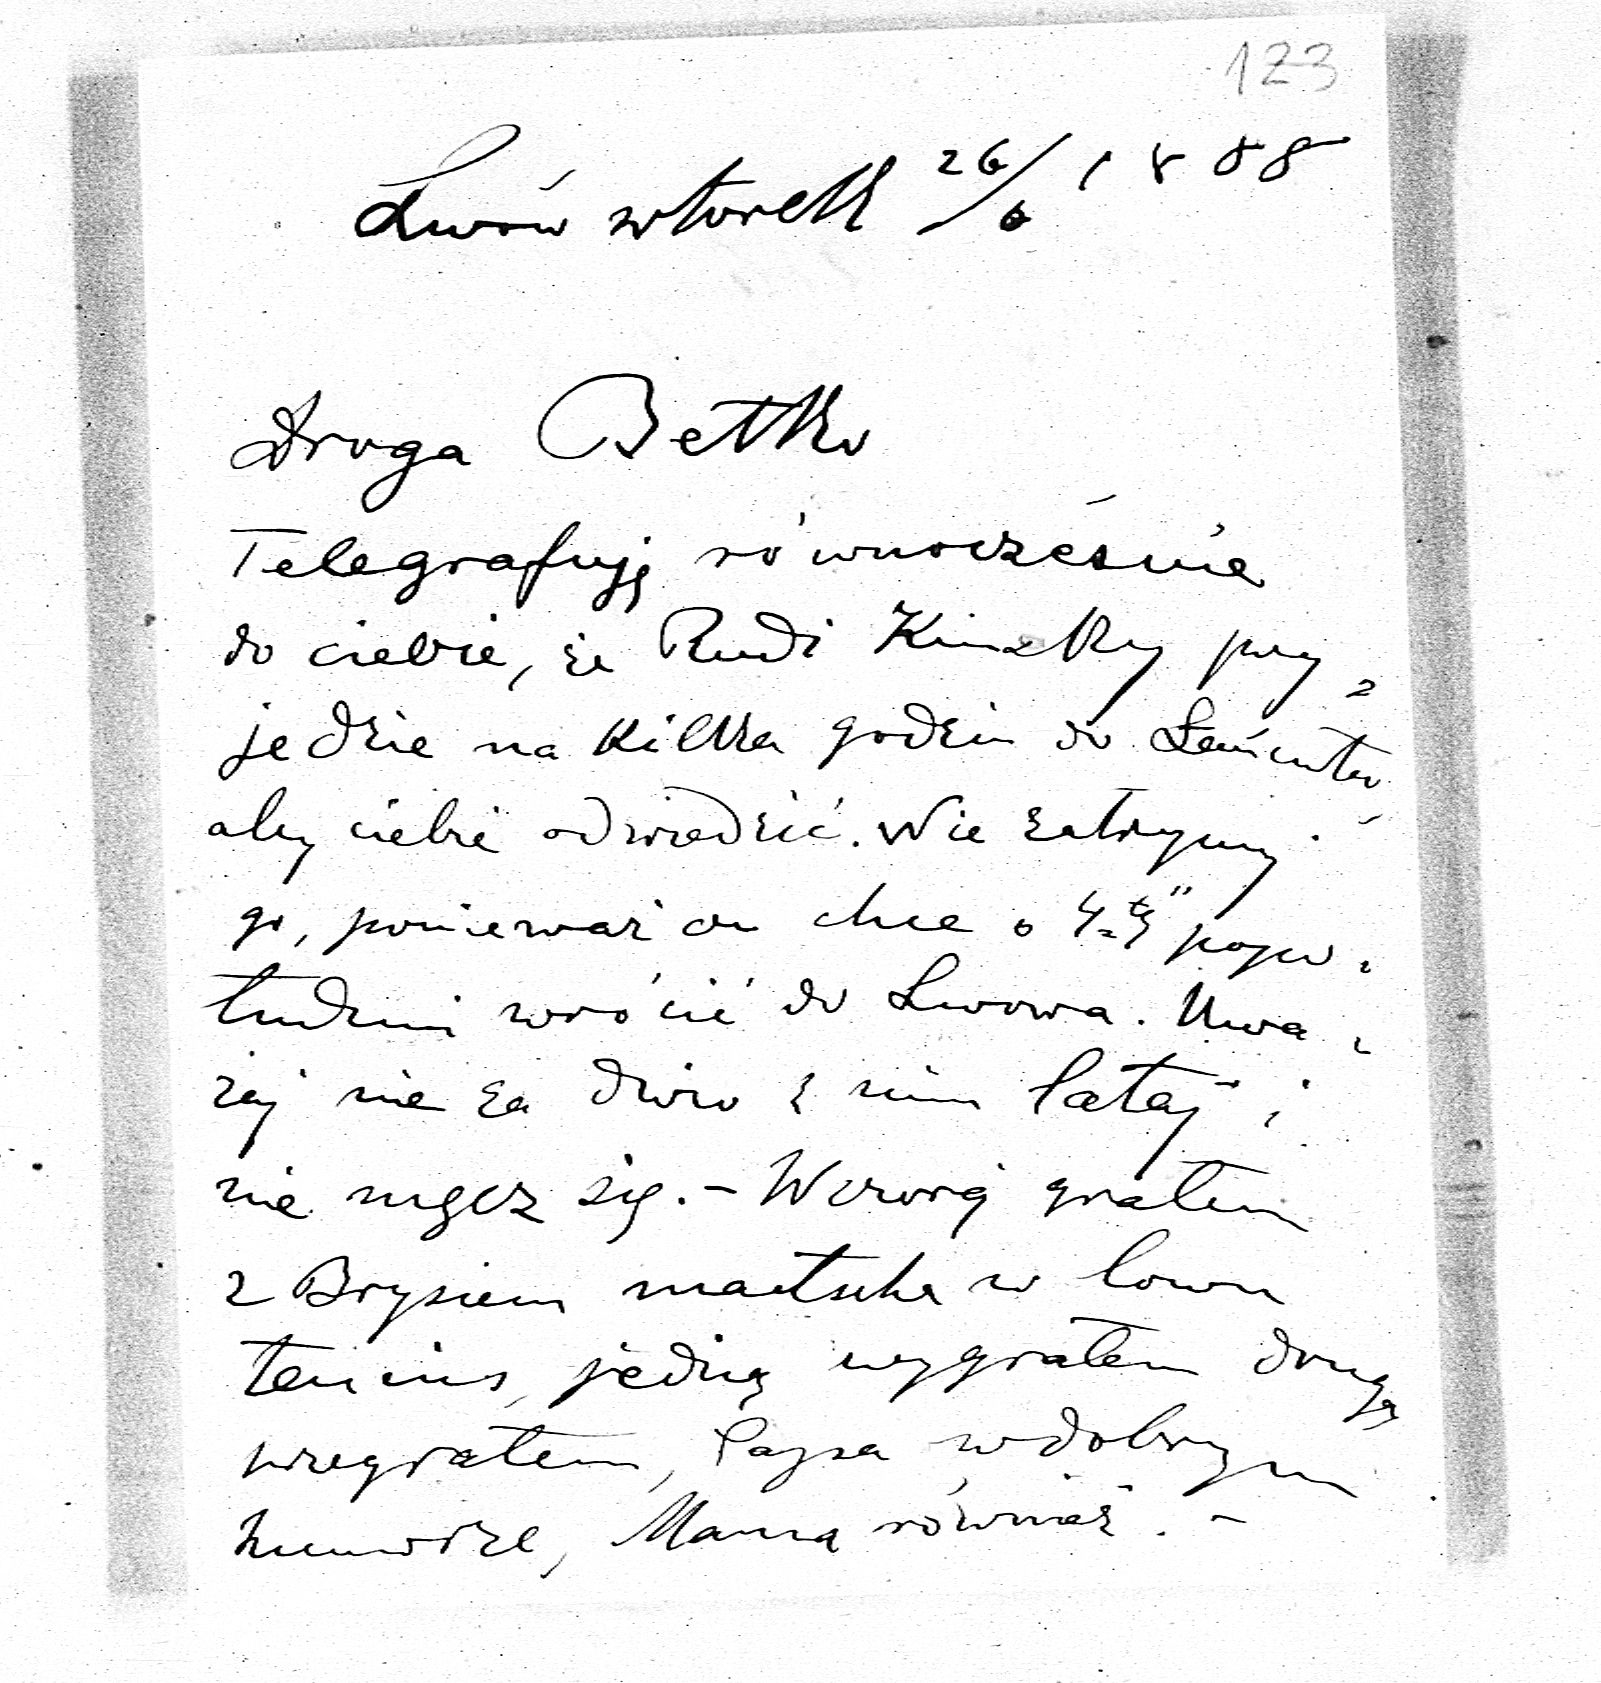 123
Lwów wtorek 26/6 1888
Droga Betko
Telegrafuję równocześnie
do ciebie, że Rudi Kinzky przy=
jedzie na kilka godzin do Łańcuta,
aby ciebie odwiedzić. Nie zatrzymuj
go, ponieważ on chce o popo=
łudniu wrócić do Lwowa. Uwa=
żaj nie za dużo z nim lataj i
nie męcz się. – Wczoraj grałem
z Brysiem matscha w lown
tennis, jedną wygrałem drugą
przegrałem, Papa w dobrym
humorze, Mama również. –